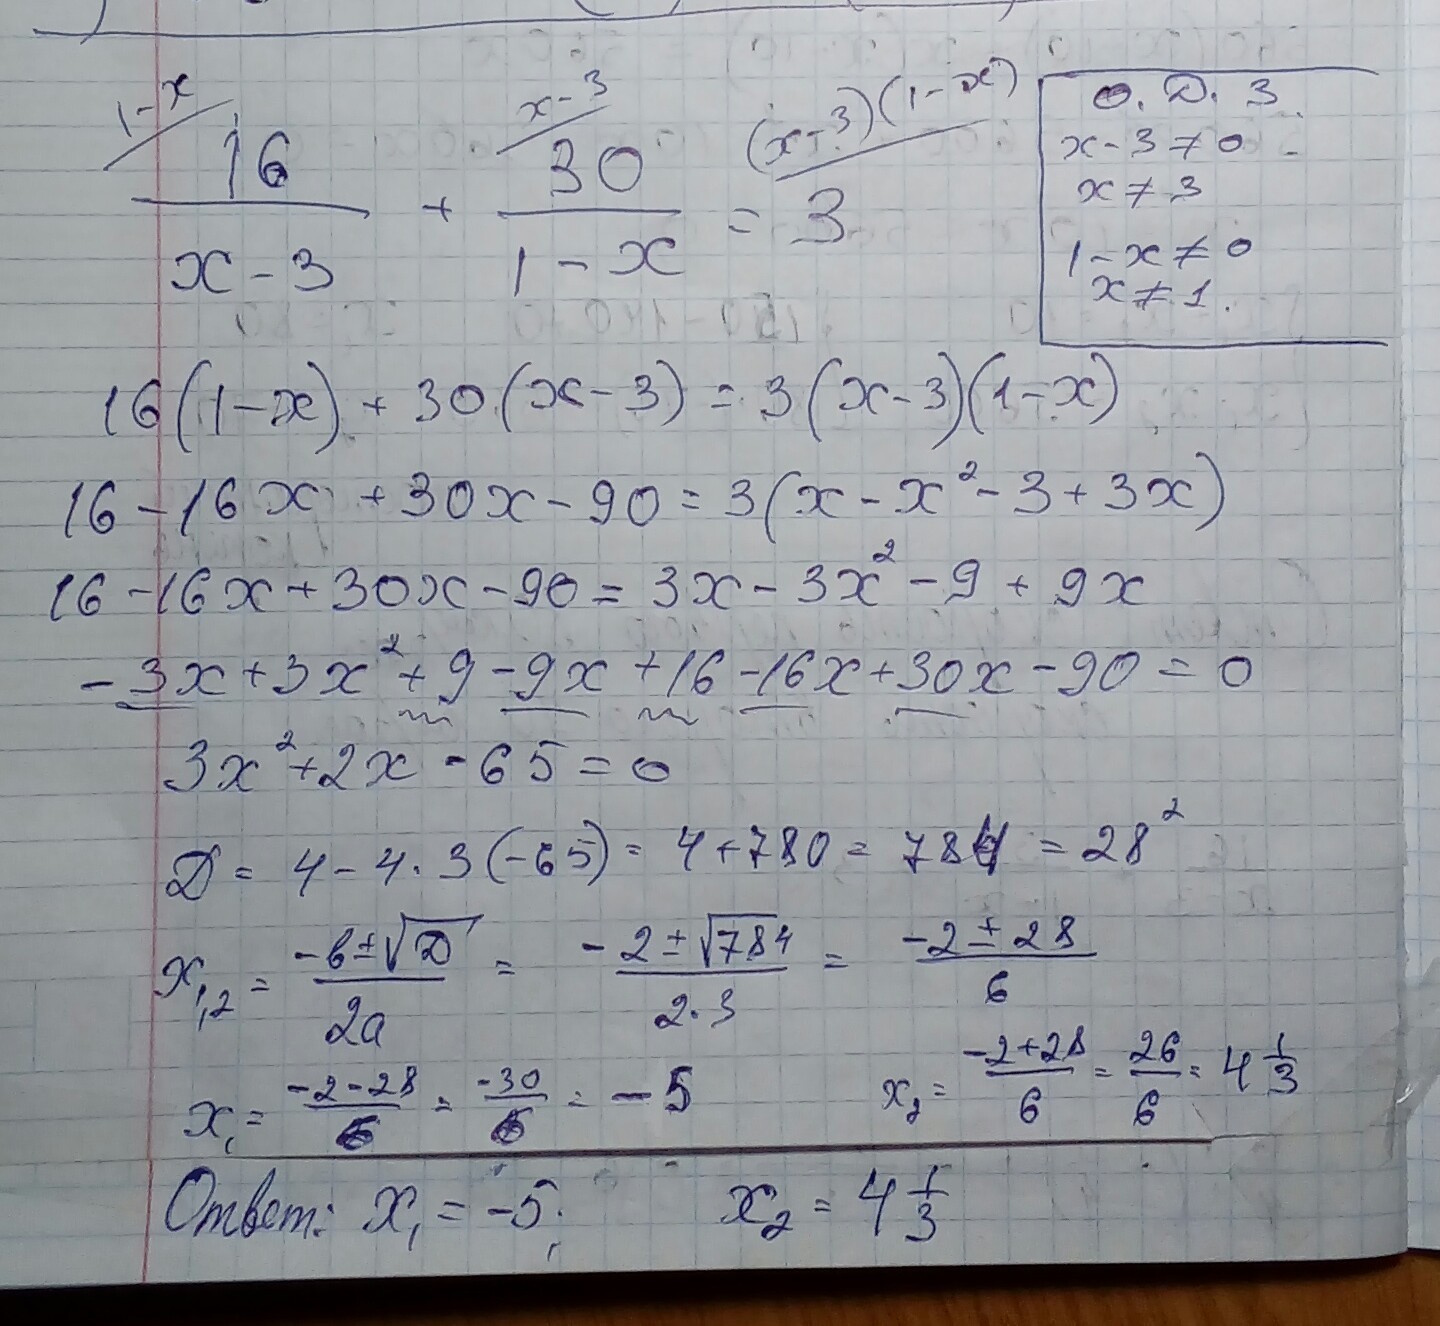 1-x x-3 (x-3)(1-x)
16/(x-3) + 30/(1-x) = 3
О. Д. З.
x-3≠0
x≠3
1-x≠0
x≠1.
16(1-x)+30(x-3)=3(x-3)(1-x)
16-16x+30x-90=3(x-x²-3+3x)
16-16x+30x-90=3x-3x²-9+9x
-3x+3x²+9-9x+16-16x+30x-90=0
3x²+2x-65=0
D=4-4·3(-65)=4+780=784=28²
x₁,₂=(-b±√D)/2a=(-2±√784)/(2·3)=(-2±28)/6
x₁=(-2-28)/6=-30/6=-5 x₂=(-2+28)/6=26/6=4 1/3
Ответ: x₁=-5; x₂=4 1/3